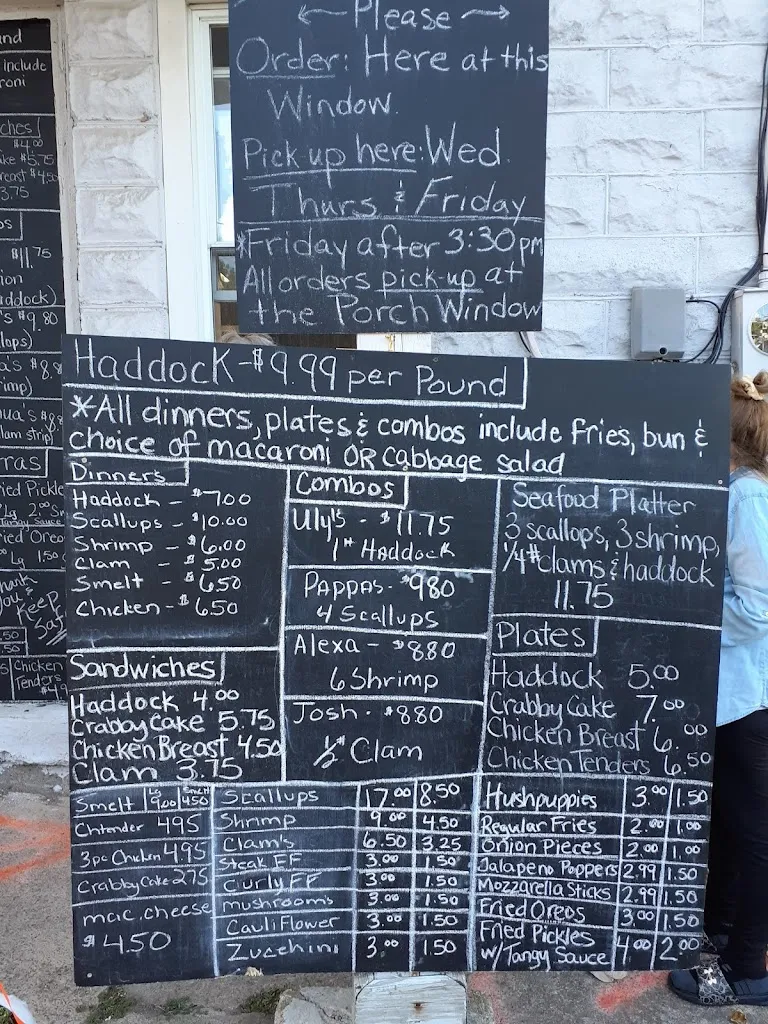 ← Please →
Order: Here at this
Window.
Pick-up here: Wed.
Thurs & Friday
*Friday after 3:30pm
All orders pick-up at
the Porch Window
Haddock - $9.99 per Pound
*All dinners, plates & combos include fries, bun &
choice of macaroni OR cabbage salad
Dinners
Haddock - $7.00
Scallops - $10.00
Shrimp - $6.00
Clam - $5.00
Smelt - $6.50
Chicken - $6.50
Combos
Uly's - $11.75
1# Haddock
Pappas - $980
4 Scallups
Alexa - $880
6 Shrimp
Josh - $880
1/2# Clam
Seafood Platter
3 scallops, 3 shrimp,
1/4# clams & haddock
11.75
Plates
Haddock 5.00
Crabby Cake 7.00
Chicken Breast 6.00
Chicken Tenders 6.50
Sandwiches
Haddock 4.00
Crabby Cake 5.75
Chicken Breast 4.50
Clam 3.75
Smelt Lg 9.00 Small 450
Chtender 495
3pc Chicken 4.95
Crabby Cake 275
mac. cheese
$4.50
Scallups 17.00 8.50
Shrimp 9.00 4.50
Clam's 6.50 3.25
Steak FF 3.00 1.50
Curly FF 3.00 1.50
mushrooms 3.00 1.50
CauliFlower 3.00 1.50
Zucchini 3.00 1.50
Hushpuppies 3.00 1.50
Regular Fries 2.00 1.00
Onion Pieces 2.00 1.00
Jalapeno Poppers 2.99 1.50
Mozzarella Sticks 2.99 1.50
Fried Oreos 3.00 1.50
Fried Pickles
w/Tangy Sauce 4.00 2.00
include
$4.00
$5.75
3.75
$11.75
$9.80
Tangy Sauce
1.50
Thank
You &
Keep
Safe
Chicken
Tenders